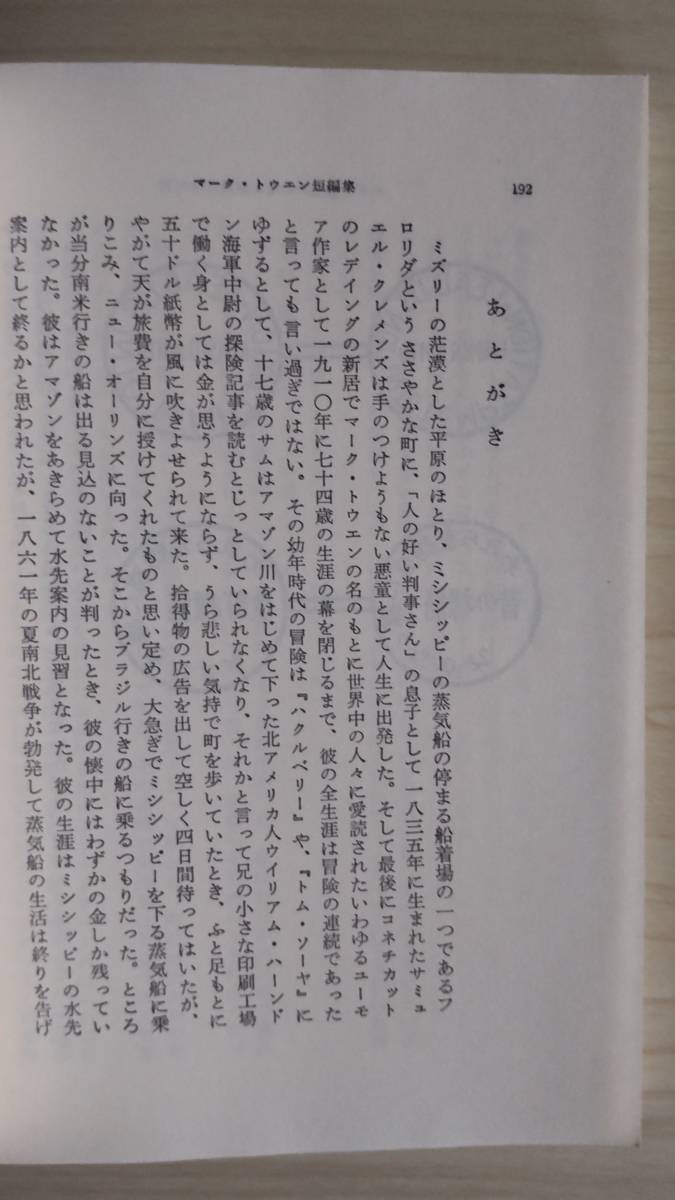 マーク・トウエン短編集
192
あとがき
ミズリーの茫漠とした平原のほとり、ミシシッピーの蒸気船の停まる船着場の一つであるフ
ロリダという ささやかな町に、「人の好い判事さん」の息子として一八三五年に生まれたサミュ
エル・クレメンズは手のつけようもない悪童として人生に出発した。そして最後にコネチカット
のレデイングの新居でマーク・トウエンの名のもとに世界中の人々に愛読されたいわゆるユーモ
ア作家として一九一〇年に七十四歳の生涯の幕を閉じるまで、彼の全生涯は冒険の連続であった
と言っても言い過ぎではない。その幼年時代の冒険は『ハクルベリー』や、『トム・ソーヤ』に
ゆずるとして、十七歳のサムはアマゾン川をはじめて下った北アメリカ人ウイリアム・ハーンド
ン海軍中尉の探険記事を読むとじっとしていられなくなり、それかと言って兄の小さな印刷工場
で働く身としては金が思うようにならず、うら悲しい気持で町を歩いていたとき、ふと足もとに
五十ドル紙幣が風に吹きよせられて来た。拾得物の広告を出して空しく四日間待ってはいたが、
やがて天が旅費を自分に授けてくれたものと思い定め、大急ぎでミシシッピーを下る蒸気船に乗
りこみ、ニュー・オーリンズに向った。そこからブラジル行きの船に乗るつもりだった。ところ
が当分南米行きの船は出る見込のないことが判ったとき、彼の懐中にはわずかの金しか残ってい
なかった。彼はアマゾンをあきらめて水先案内の見習となった。彼の生涯はミシシッピーの水先
案内として終るかと思われたが、一八六一年の夏南北戦争が勃発して蒸気船の生活は終りを告げ